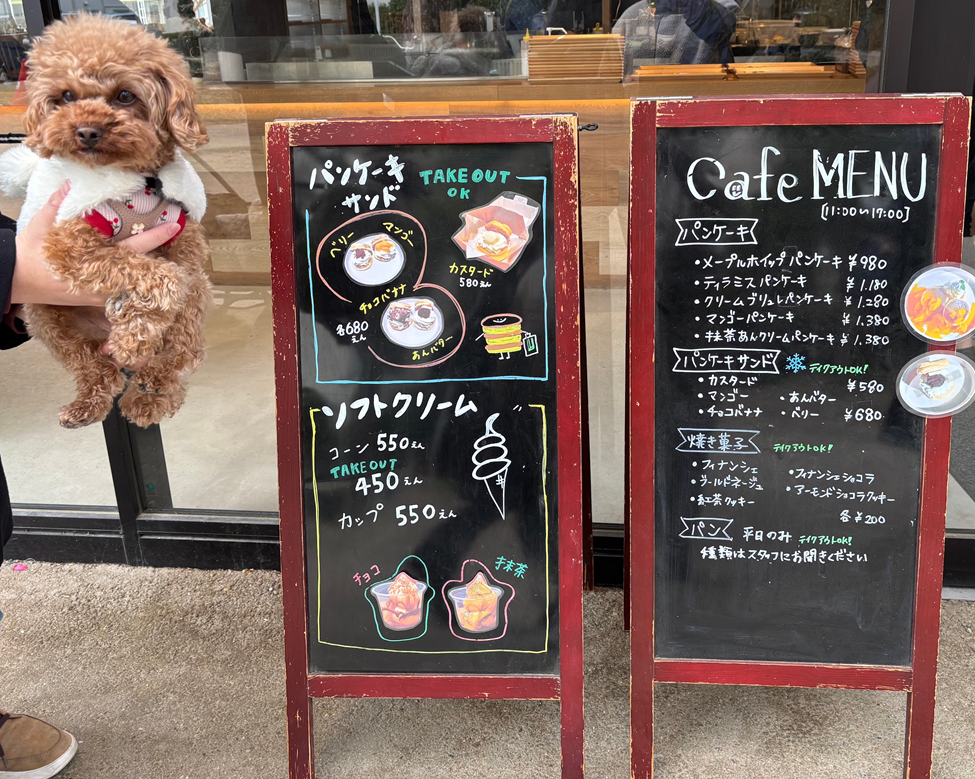 パンケーキ
サンド
TAKE OUT
OK
ベリー
マンゴー
カスタード
580えん
チョコバナナ
各680
えん
あんバター
ソフトクリーム
コーン 550えん
TAKE OUT
450えん
カップ 550えん
チョコ
抹茶
Cafe MENU
[11:00~17:00]
パンケーキ
・メープルホイップパンケーキ ¥980
・ティラミスパンケーキ ¥1.180
・クリームブリュレパンケーキ ¥1.280
・マンゴーパンケーキ ¥1.380
・抹茶あんクリームパンケーキ ¥1.380
パンケーキサンド テイクアウトOK!
・カスタード ¥580
・マンゴー ・あんバター
・チョコバナナ ・ベリー ¥680
焼き菓子 テイクアウトOK!
・フィナンシェ ・フィナンシェショコラ
・ブールドネージュ ・アーモンドショコラクッキー
・紅茶クッキー
各¥200
パン 平日のみ テイクアウトOK!
種類はスタッフにお聞きください